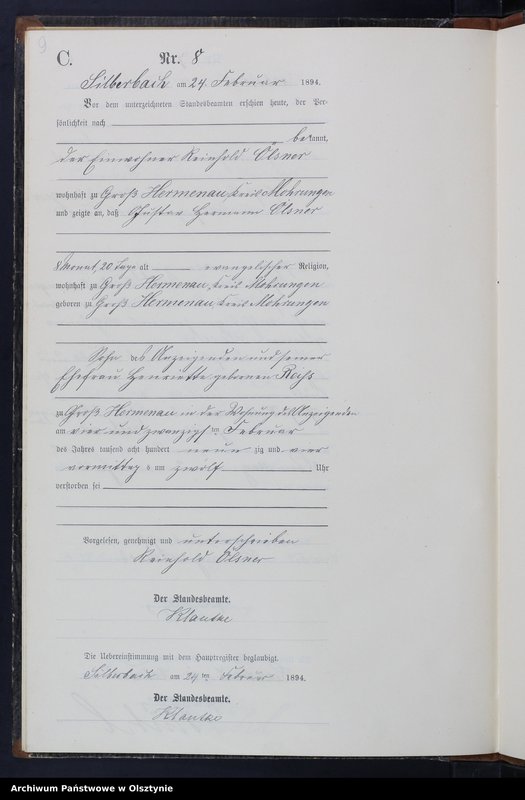 9
C. Nr. 8
Silberbach am 24. Februar 1894.
Vor dem unterzeichneten Standesbeamten erschien heute, der Per-
sönlichkeit nach
bekannt,
der Einwohner Reinhold Ölsner
wohnhaft zu Groß Hermenau, Kreis Mohrungen
und zeigte an, daß Gustav Hermann Ölsner
8 Monat, 20 Tage alt evangelischer Religion,
wohnhaft zu Groß Hermenau, Kreis Mohrungen
geboren zu Groß Hermenau, Kreis Mohrungen
Sohn des Anzeigenden und seiner
Ehefrau Henriette geborenen
zu Groß Hermenau in der Wohnung des Anzeigenden
am vier und zwanzigsten Februar
des Jahres tausend acht hundert neun zig und vier
vormittags um zwölf Uhr
verstorben sei
Vorgelesen, genehmigt und unterschrieben
Reinhold Ölsner
Der Standesbeamte.
Klautke
Die Uebereinstimmung mit dem Hauptregister beglaubigt.
Silberbach am 24ten Februar 1894.
Der Standesbeamte.
Klautke
Archiwum Państwowe w Olsztynie